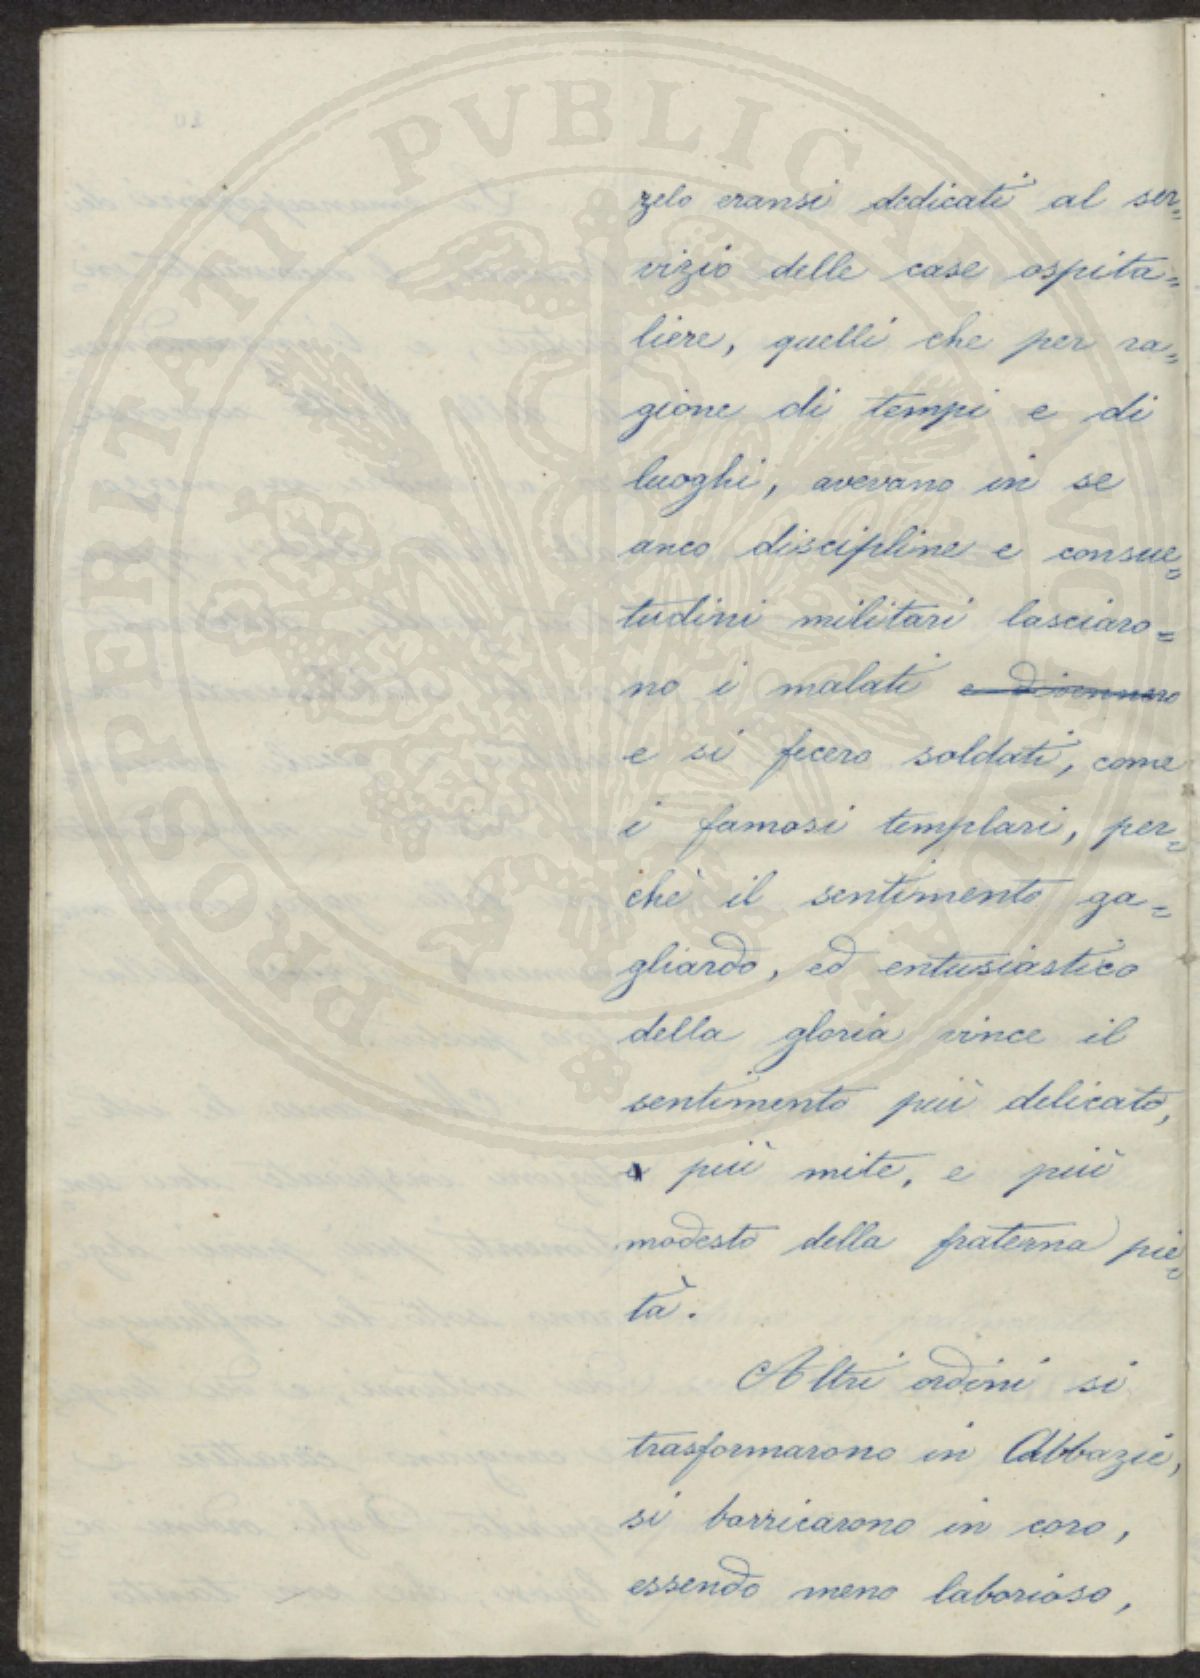 PROSPERITATI PVBLICAE NOVAE
zelo eransi dedicati al ser=
vizio delle case ospita=
liere, quelli che per ra=
gione di tempi e di
luoghi, avevano in se
anco discipline e consue=
tudini militari lasciaro=
no i malati e divennero
e si fecero soldati, come
i famosi templari, per=
chè il sentimento ga=
gliardo, ed entusiastico
della gloria vince il
sentimento più delicato,
più mite, e più
modesto della fraterna pie=
tà.
Altri ordini si
trasformarono in Abbazie,
si barricarono in coro,
essendo meno laborioso,